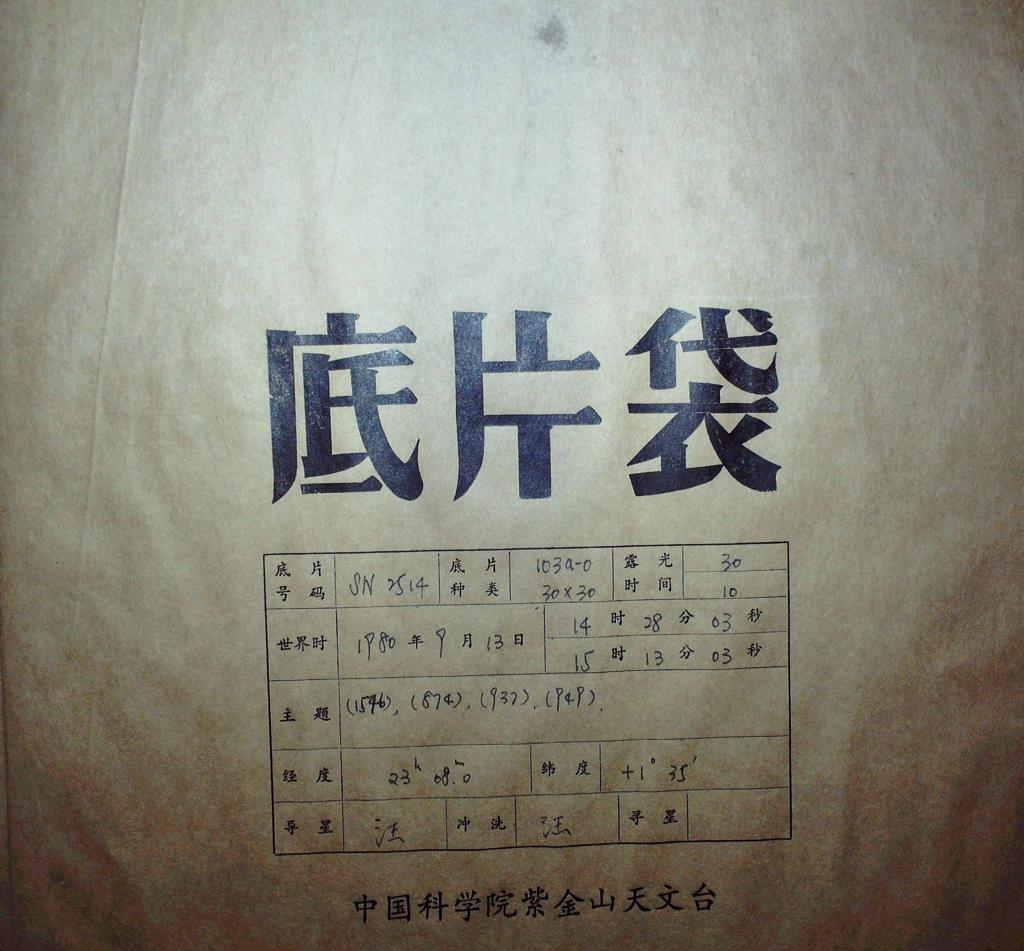 底片袋
底片号码 SN 2514 底片种类 103a-0 30×30 露光时间 30 10
世界时 1980年9月13日 14时28分03秒
15时13分03秒
主题 (1546), (874), (937), (949).
经度 23h 08.m0 纬度 +1° 35′
导星 汪 冲洗 汪 寻星
中国科学院紫金山天文台